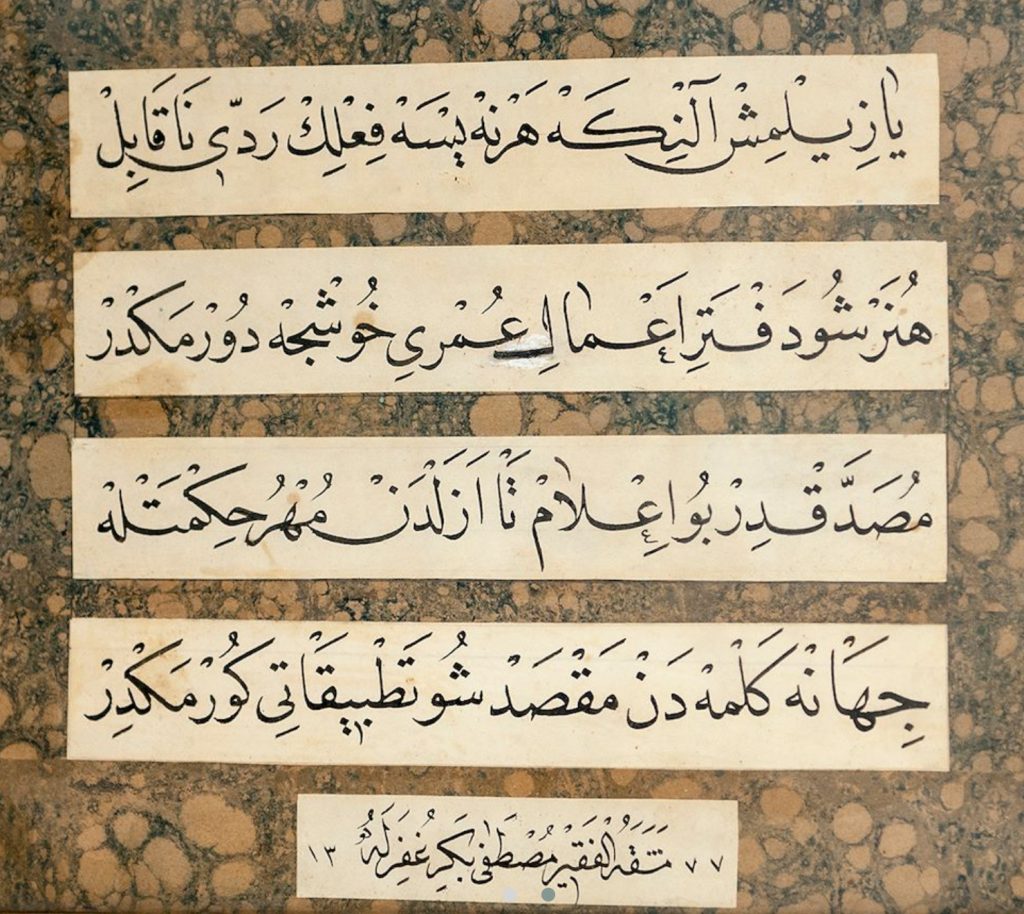 يازِيلْمِشْ آلْنِكَه هَرْنَه يسَه فِعْلِكْ رَدّى نَا قَابِلْ
هُنَرْ شُو دَفْتَرِ اَعْمالِ عُمْرِي خُوشْجَه دُورْمَكْدَرْ
مُصَدَّقْدِرْ بُو اِعْلامْ تَا اَزَلْدَنْ مُهْرُ حِكْمَتْلَه
جِهَانَه كَلْمَه دَنْ مَقْصَدْ شُو تَطْبِيقَاتِي كُورْمَكْدِرْ
٧٧ مَشَقَهُ الْفَقِيرْ مُصْطَفٰى بَكِرْ غُفِرَلَهُ ١٣